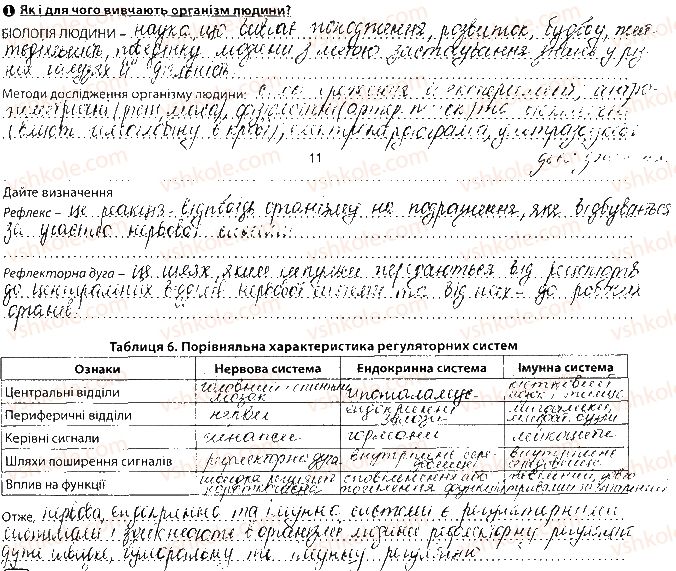 1 Як і для чого вивчають організм людини?
БІОЛОГІЯ ЛЮДИНИ – наука, що вивчає походження, розвиток, будову, життє-
поведінку людини з метою застосування знань у різ-
них галузях її діяльності.
Методи дослідження організму людини: спостереження й експеримент, антро-
пометричні (ріст, маса), фізіологічні (артер. тиск) та
(вміст гемоглобіну в крові), електрокардіограма, ультразвукові
11
дослідження
Дайте визначення
Рефлекс – це реакція-відповідь організму на подразнення, яке відбувається
за участю нервової системи.
Рефлекторна дуга – це шлях, яким імпульси передаються від рецепторів
до центральних відділів нервової системи та від них – до робочих
органів.
Таблиця 6. Порівняльна характеристика регуляторних систем
Ознаки Нервова система Ендокринна система Імунна система
Центральні відділи головний і спинний мозок гіпоталамус кістковий мозок і тимус
Периферичні відділи нерви ендокринні залози
Керівні сигнали гормони лейкоцити
Шляхи поширення сигналів рефлекторна дуга внутрішнє середовище внутрішнє середовище
Вплив на функції швидка
Отже, нервова, ендокринна та імунна системи є регуляторними
системами і здійснюють в організмі людини рефлекторну регуляцію
гуморальну та імунну регуляцію
vshkole.com